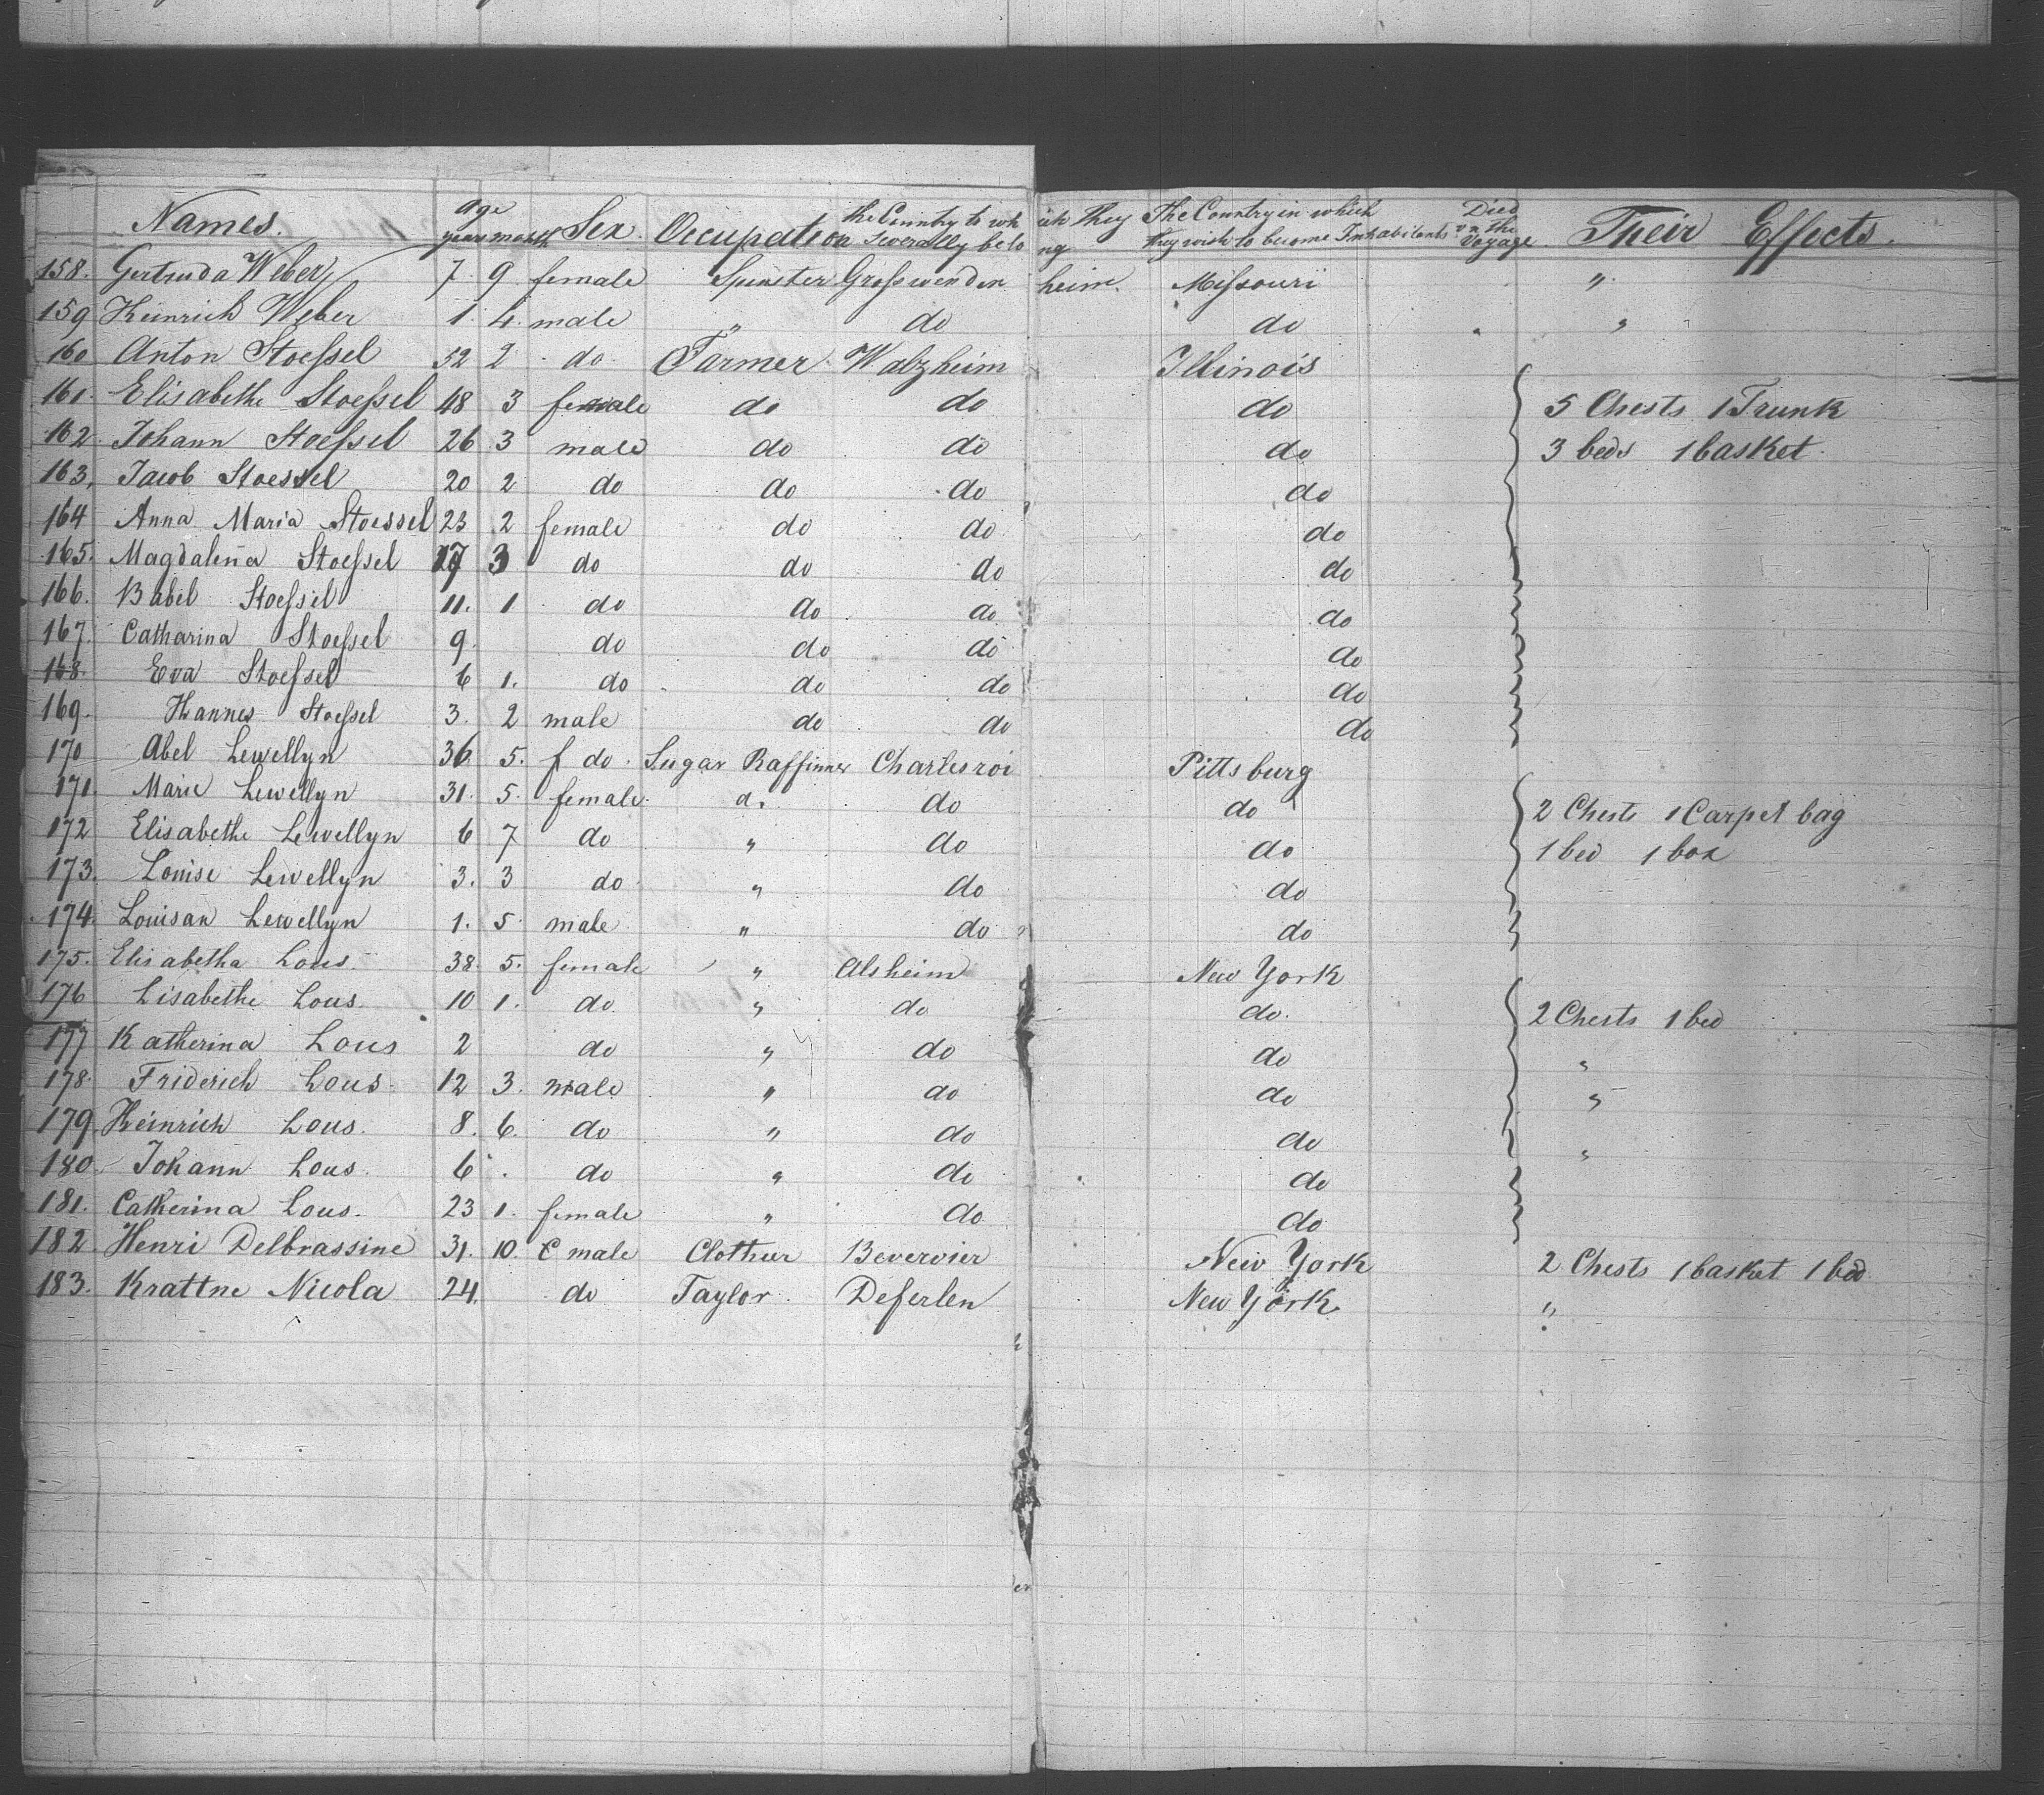 Names. Age years month Sex Occupation the Country to which they severally belong The Country in which they wish to become Inhabitants Died on the Voyage Their Effects.
158. Gertruda Weber 7 9 female Spinster Grosswendenheim. Missouri "
159 Heinrich Weber 1. 4. male " do do "
160 Anton Stoessel 52 2 do Farmer Walzheim Illinois
161. Elisabethe Stoessel 48 3 female do do do 5 Chests 1 Trunk
162. Johann Stoessel 26 3 male do do do 3 beds 1 basket.
163. Jacob Stoessel 20 2 do do do do
164 Anna Maria Stoessel 23 2 female do do do
165. Magdalena Stoessel 17 3 do do do do
166. Babel Stoessel 11. 1 do do do do
167. Catharina Stoessel 9 do do do do
168. Eva Stoessel 6 1. do do do do
169. Hannes Stoessel 3. 2 male do do do
170 Abel Lewellyn 36 5. f do Sugar Raffinner Charlesroi Pittsburg
171. Marie Lewellyn 31. 5. female do do do 2 Chests 1 Carpet bag
172 Elisabethe Lewellyn 6 7 do " do do 1 bed 1 box
173. Louise Lewellyn 3. 3 do " do do
174. Louisan Lewellyn 1. 5 male " do do
175. Elisabetha Lous 38. 5. female " Alsheim New York
176 Lisabethe Lous 10 1. do " do do. 2 Chests 1 bed
177 Katherina Lous 2 do " do do "
178. Friderich Lous 12 3. male " do do "
179 Heinrich Lous. 8. 6. do " do do "
180 Johann Lous. 6 do " do do
181. Catherina Lous. 23 1. female " do do
182. Henri Delbrassine 31. 10. male Clothier Bevervier New York 2 Chests 1 basket 1 bed
183. Krattne Nicola 24 do Taylor Deferlen New York "